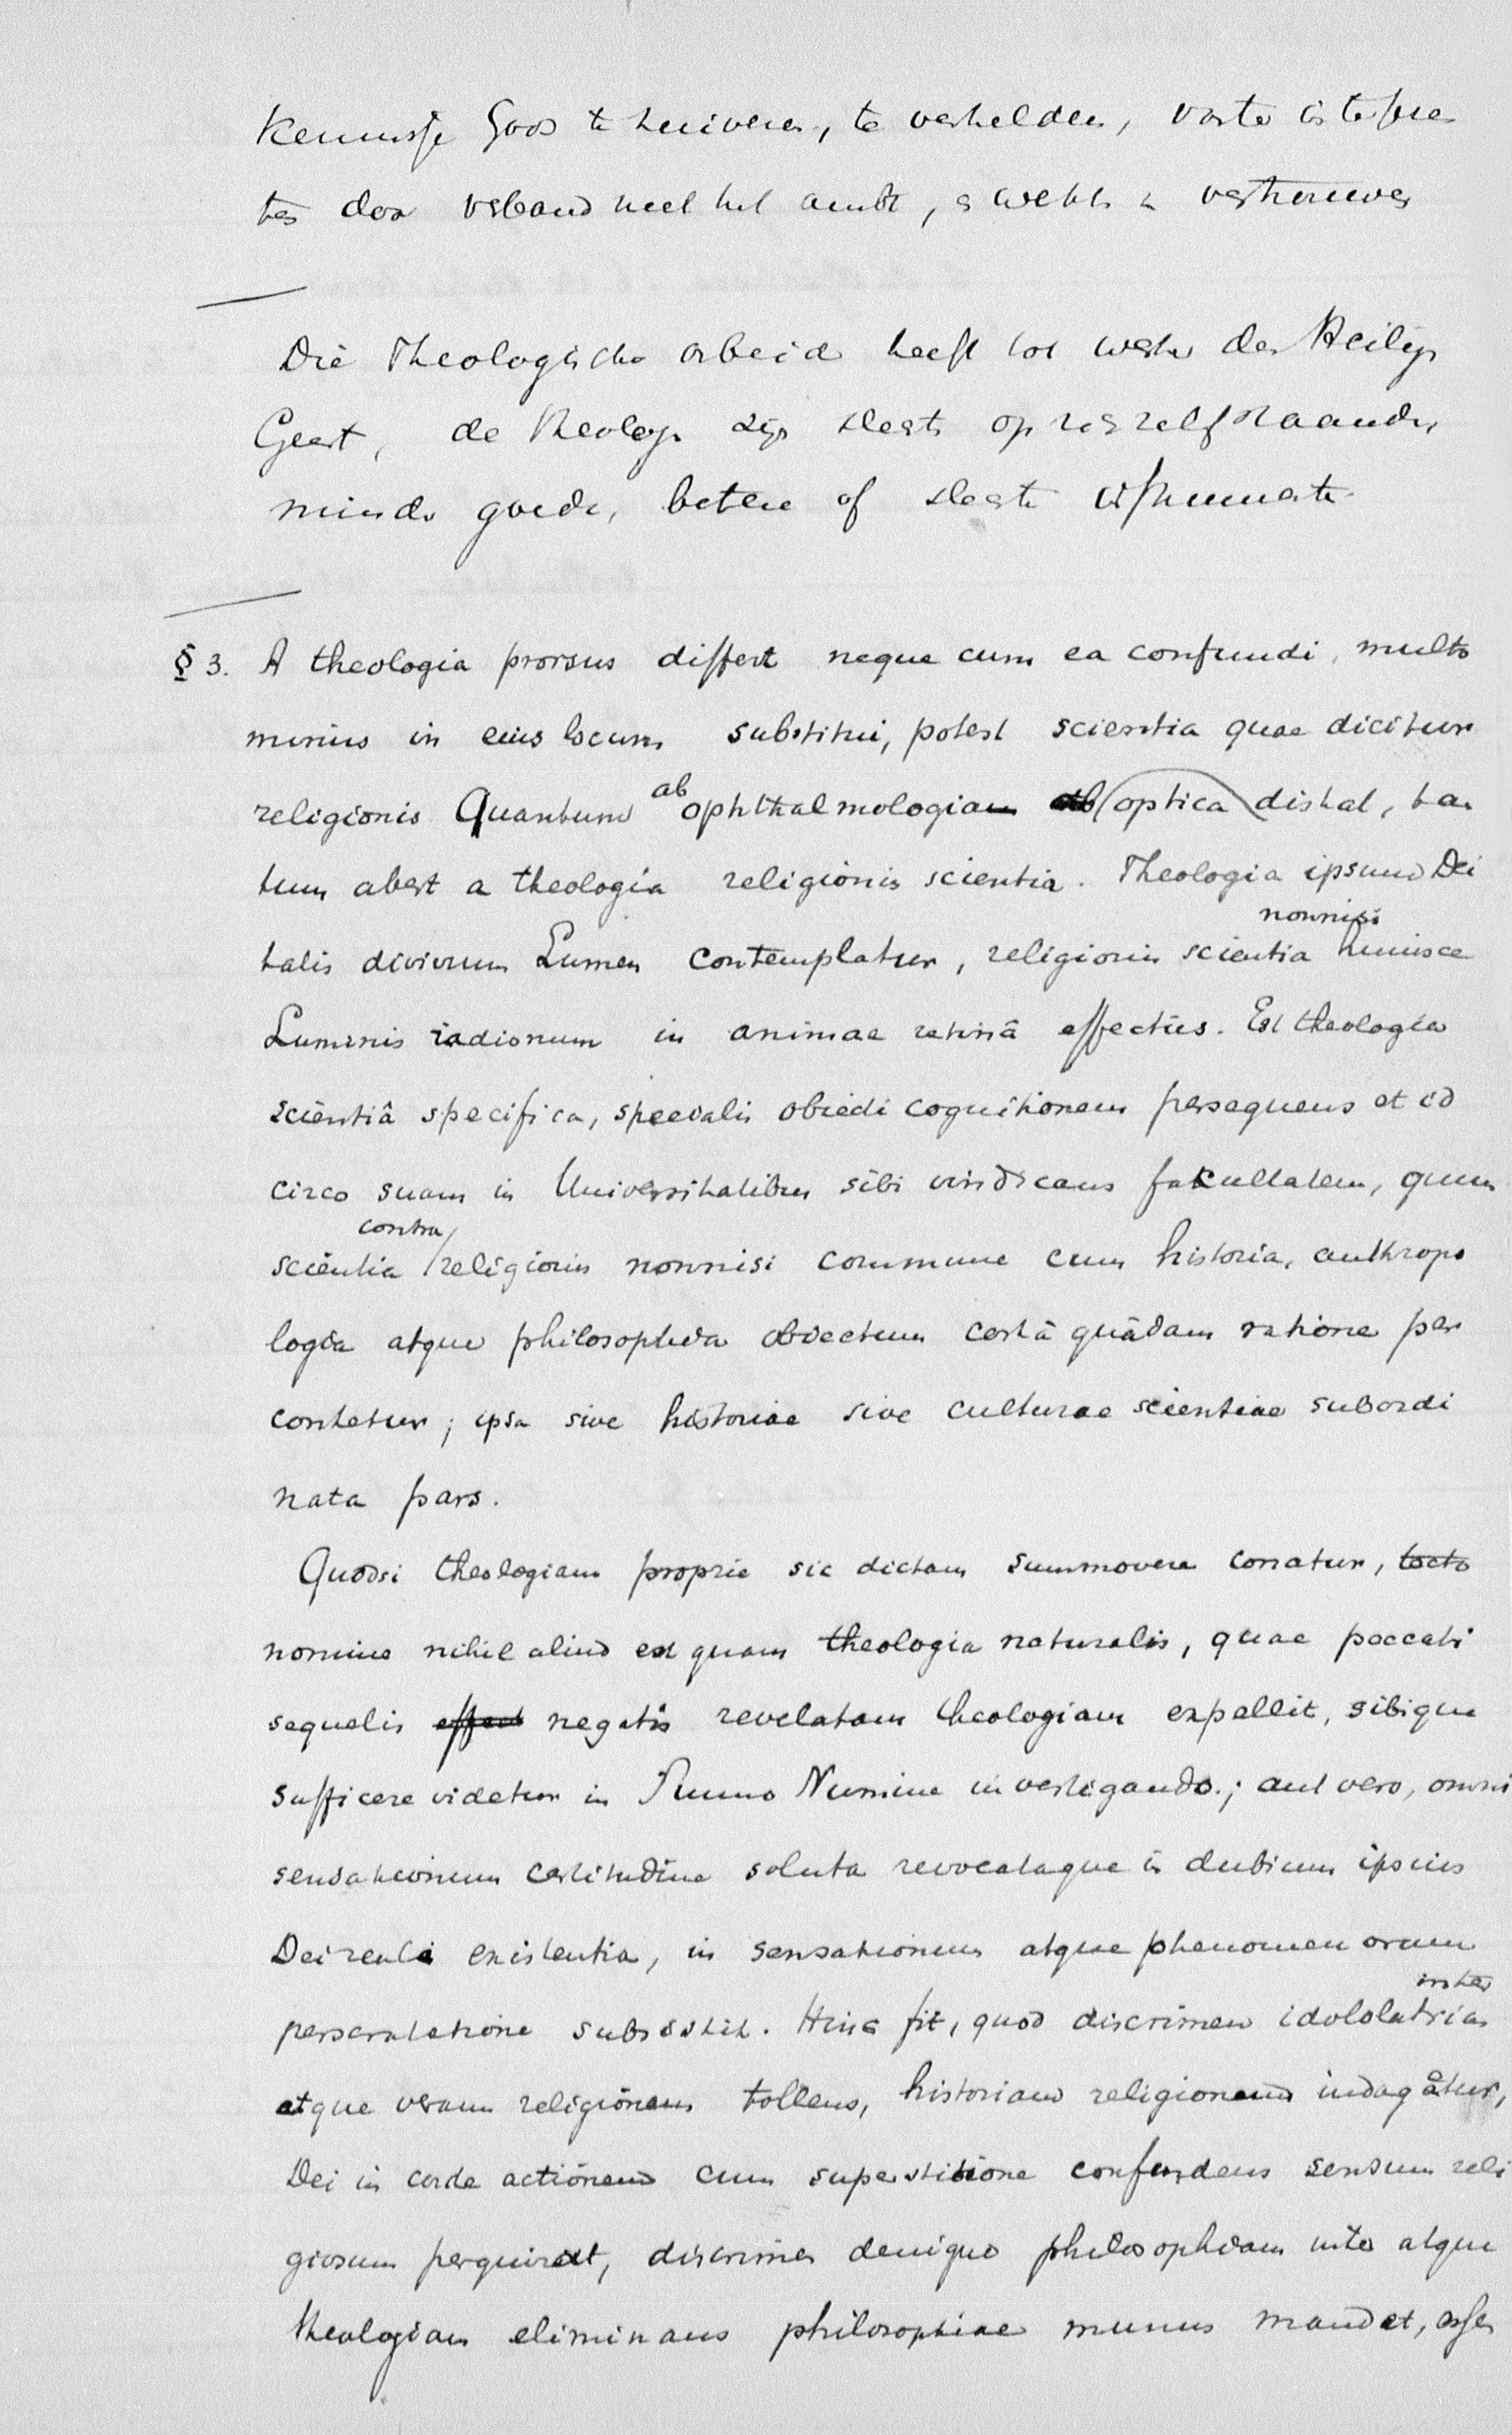 Kennisse Gods te zuiveren, te verhelderen, vaster in te pren
ten door verband met het ambt, en wekken van vertrouwen
Die Theologische arbeid heeft tot werker den Heiligen
Geest, de Theologen zijn slechts op zich zelf staande,
minder goede, betere of slechte
§ 3. A theologia prorsus differt neque cum ea confundi, multo
minus in eius locum substitui, potest scientia quae dicitur
religionis Quantum ab ophthalmologia optica distat, tan
tum abest a theologia religionis scientia. Theologia ipsum Dei
talis divinum Lumen contemplatur, religionis scientia nonnisi huiusce
Luminis radionum in animae retinâ effectus. Est theologia
scientiâ specifica, specialis obiecti cognitionem persequens et id
circo suam in Universitatibus sibi vindicans facultatem, quum
scientia contra religionis nonnisi commune cum historia, anthropo
logia atque philosophia obiectum certâ quâdam ratione per
contetur; ipsa sive historiae sive culturae scientiae subordi
nata pars.
Quodsi theologiam proprie sic dictam summovere conatur, tecto
nomine nihil aliud est quam theologia naturalis, quae peccati
sequelis effect negatis revelatam theologiam expellit, sibique
sufficere videtur in Summo Numine investigando; aut vero, omni
sensationum certitudine soluta revocataque in dubium ipsius
Dei reali existentia, in sensationum atque phenomenorum
perscrutatione subsistit. Hinc fit, quod discrimen inter idololatriam
atque veram religionem tollens, historiam religionem indagâtur,
Dei in corde actionem cum superstitione confundens sensum reli
giosum perquirat, discrimen denique philosophiam inter atque
theologiam eliminans philosophiae munus mandet,